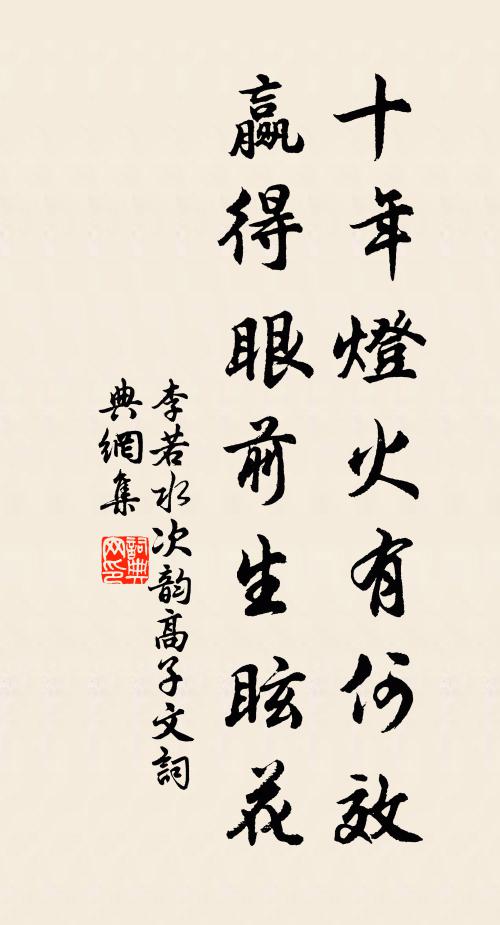 十年燈火有何效
贏得眼前生眩花
李若水次韵高子文詞
典網集
詞典
网印